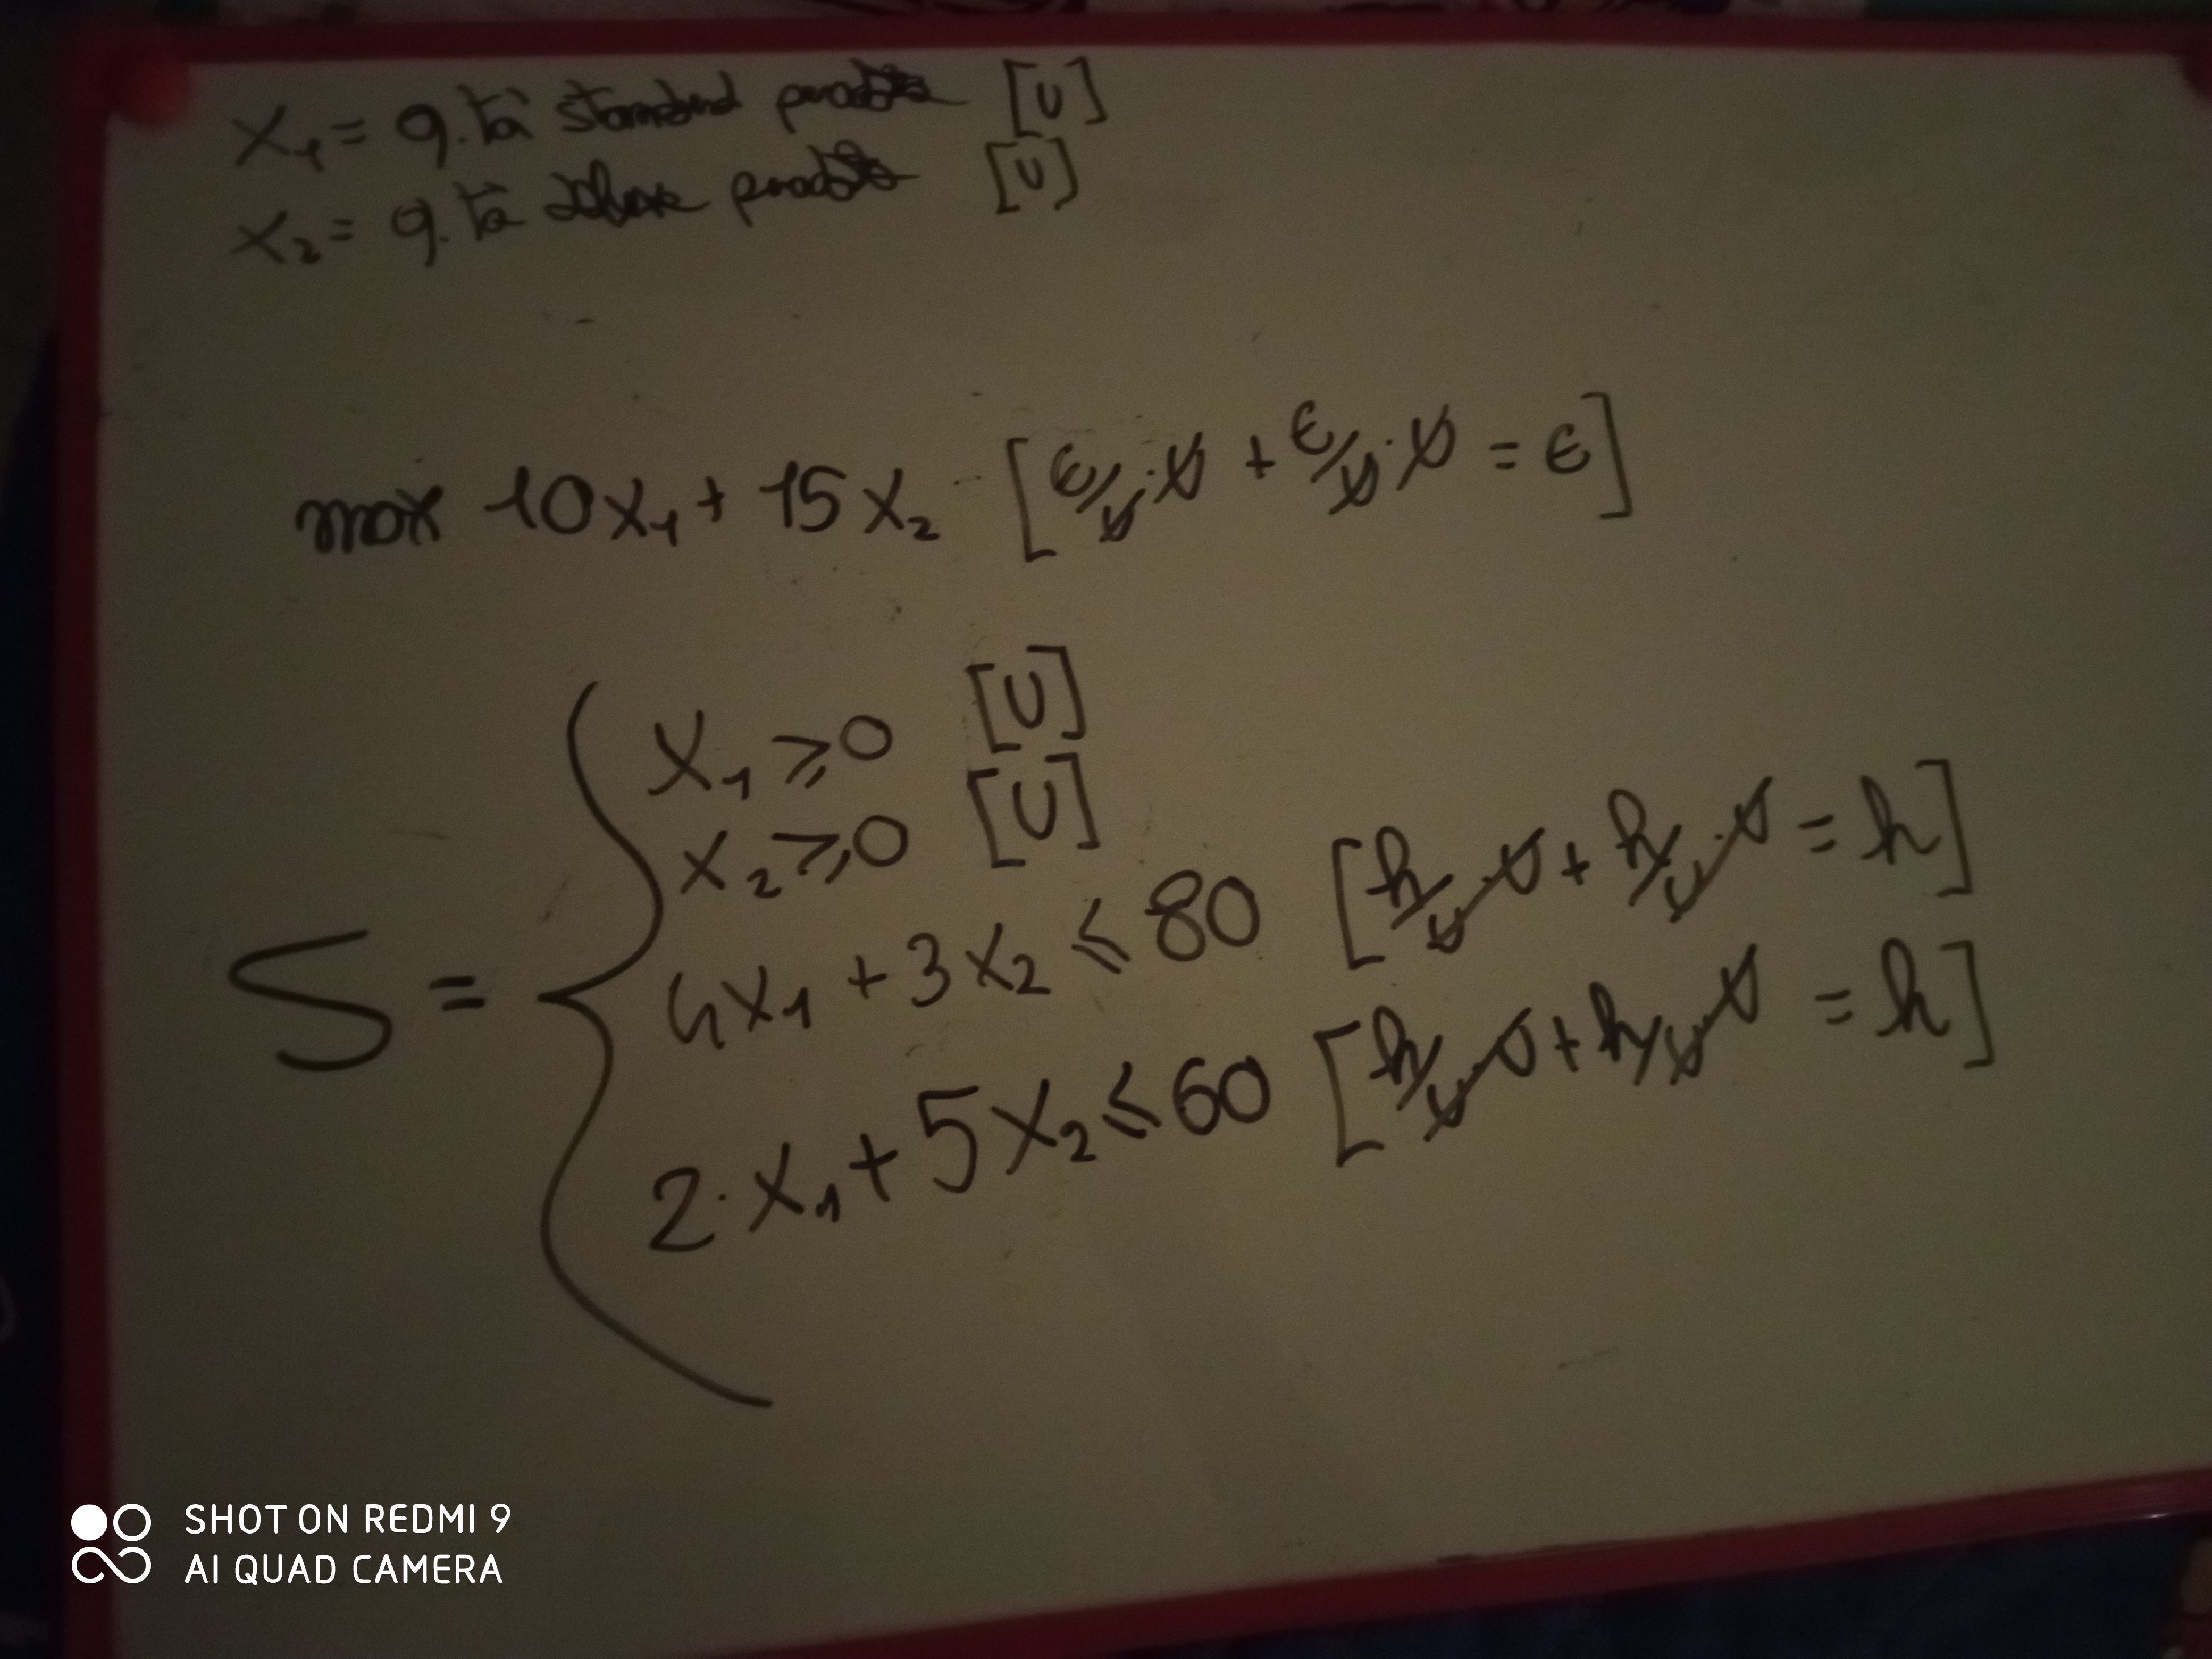 X₁ = q.tà standard prodotte [U]
X₂ = q.tà deluxe prodotte [U]
max 10X₁ + 15X₂ [€/U·U + €/U·U = €]
S = {
X₁ ≥ 0 [U]
X₂ ≥ 0 [U]
4X₁ + 3X₂ ≤ 80 [h/U·U + h/U·U = h]
2·X₁ + 5X₂ ≤ 60 [h/U·U + h/U·U = h]
SHOT ON REDMI 9
AI QUAD CAMERA